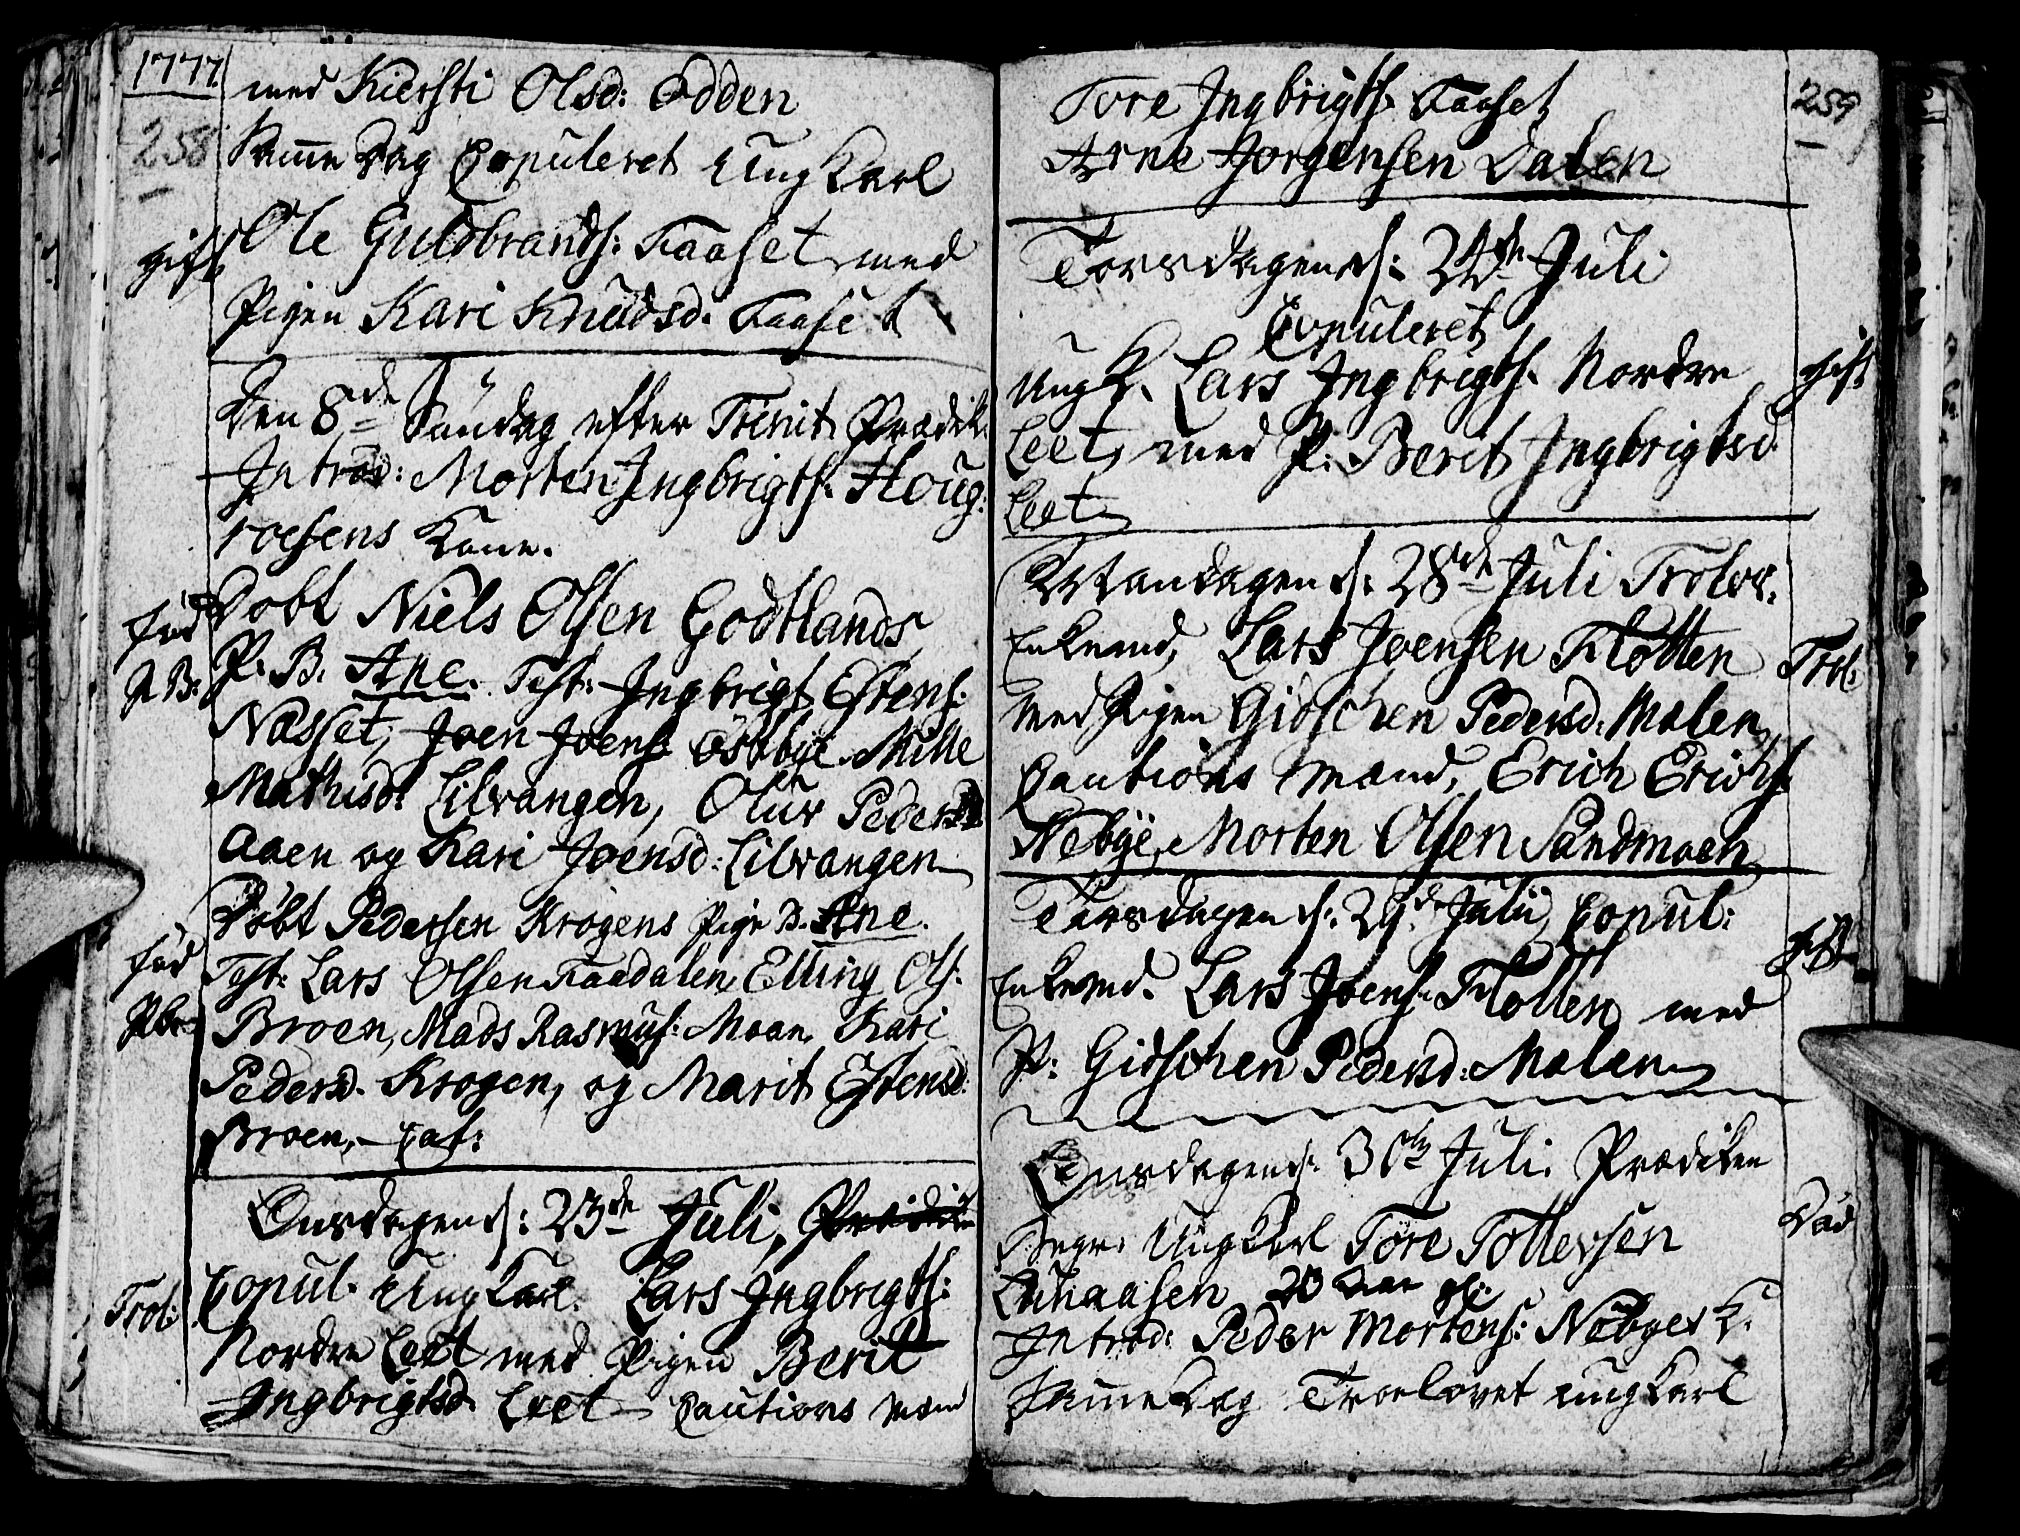 1777.
258
med Kiersti Olsd: Odden
Samme Dag Copuleret Ung Karl
gift Ole Guldbrands: Faaset med
Pigen Kari Knudsd. Faaset
Den 8de Søndag efter Trinit. Prædik.
Introd: Morten Ingbrigts. Houg:
roesens Kone.
fød Døbt Niels Olsen Godtlands
P. B: P. B. Ane. Test: Ingbrigt Estens:
Næsset, Joen Joens. Östbye Mille
Mathisd: Lilvangen, Oluv Pedersd
Aaen og Kari Joensd: Lilvangen
Døbt Pedersen Krogens Pige B. Ane.
fød Test: Lars Olsen Faadalen, Elling Ols:
Pbr. Broen, Mads Rasmus: Moan, Kari
Pedersd. Krogen, og Marit Estensd:
Broen, Cat:
Onsdagen d: 23de Juli,
Copul. Ung Karl. Lars Ingbrigts:
Trol: Nordre Leet med Pigen Berit
Ingbrigtsd. Leet Cautions Mænd
259
Tore Ingbrigts. Faaset
Arne Jorgensen Dalen
Torsdagen d: 24de Juli
Copuleret
Ung K. Lars Ingbrigts. Nordre gift
Leet, med P: Berit Ingbrigtsd.
Leet
Mandagen d: 28de Juli Trolov.
Enkemd, Lars Joensen Flotten Trol:
med Pigen Gidschen Pedersd: Malen
Cautions Mænd, Erich Erichs.
Nebye, Morten Olsen Sandmoen
Tirsdagen d: 29de Julii, Copul:
gift
Enkemd. Lars Joens. Flotten med
P: Gidschen Pedersd: Malen
Onsdagen d: 30te Juli. Prædiken
Død
Begr. Ung Karl Tore Tollevsen
Aar gl:
Introd: Peder Mortens: Nebyes K.
Samme Dag Troelovet ung Karl